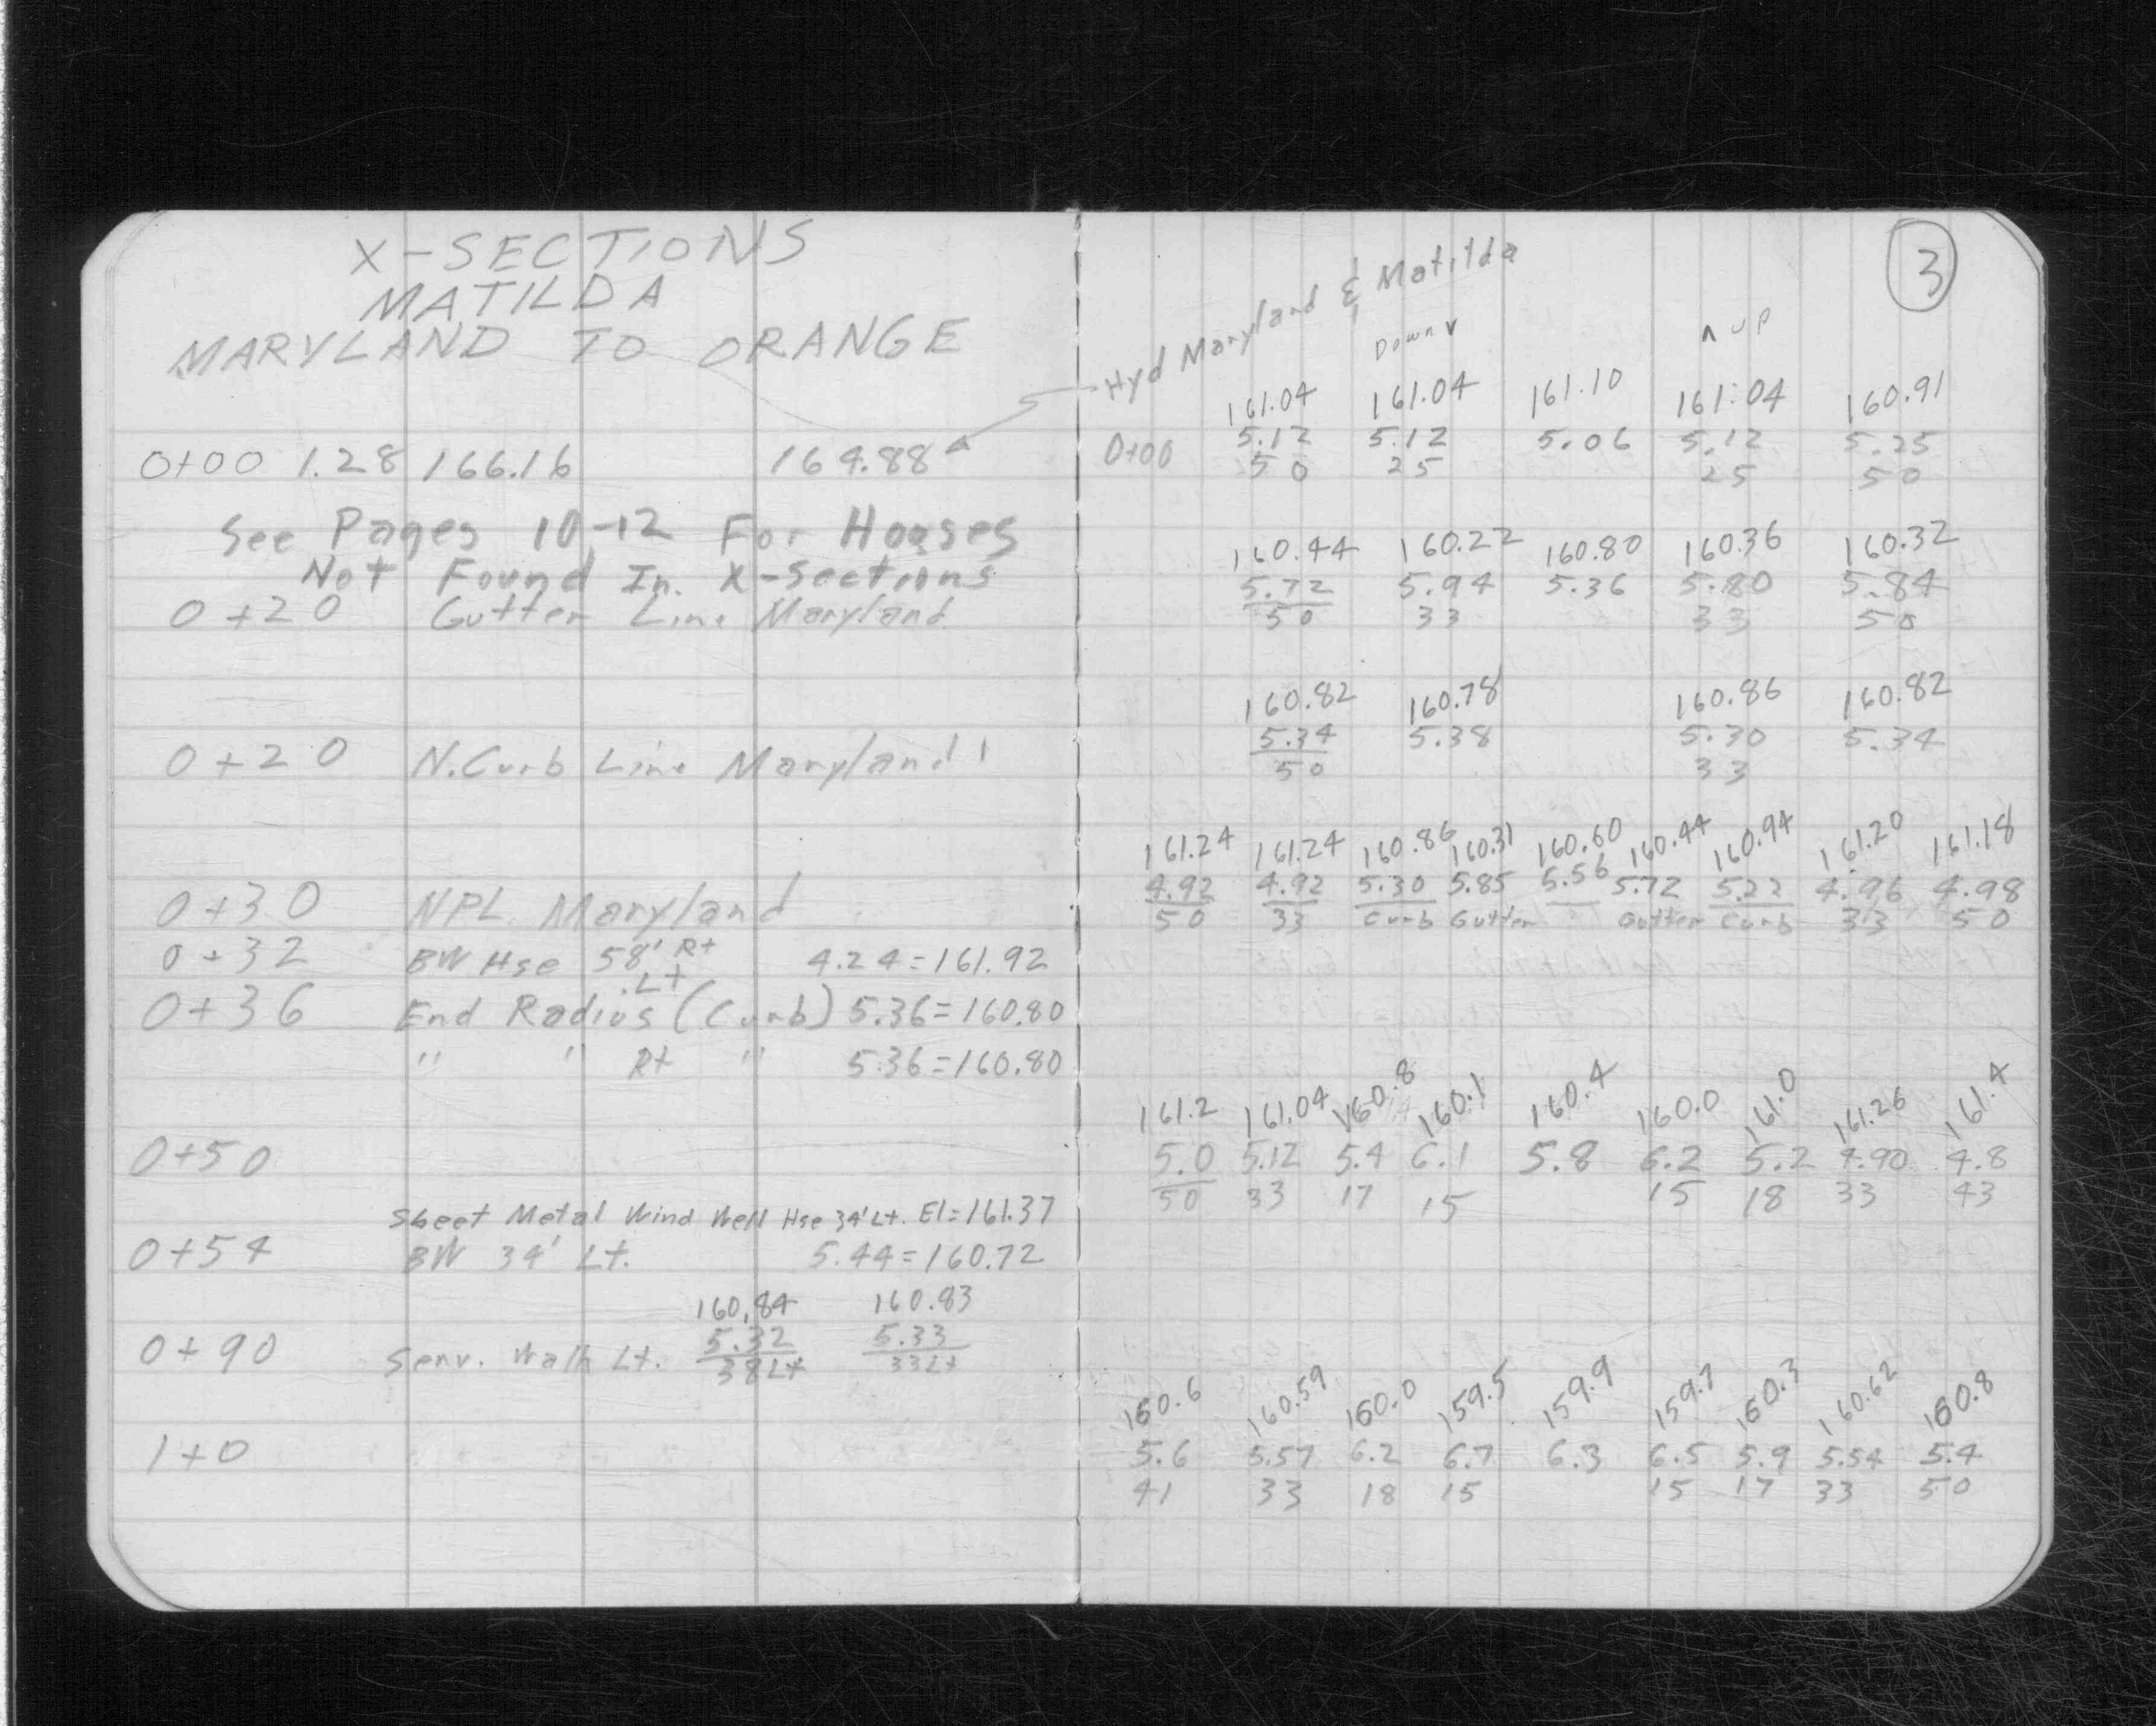 X-SECTIONS
MATILDA
MARYLAND TO ORANGE
0+00 1.28 166.16 164.88
See Pages 10-12 For Houses
Not Found In X-Sections
0+20 Gutter Line Maryland
0+20 N. Curb Line Maryland
0+30 NPL Maryland
0+32 BW Hse 58' Rt 4.24=161.92
Lt
0+36 End Radius (Curb) 5.36=160.80
" " Rt " 5.36=160.80
0+50
Sheet Metal Wind Well Hse 34' Lt. El=161.37
0+54 BW 34' Lt. 5.44=160.72
160.84 160.83
5.32 5.33
0+90 Serv. Walk Lt. 38Lt 33Lt
1+0
3
Hyd Maryland & Matilda
Down v ʌ up
161.04 161.04 161.10 161.04 160.91
0+00 5.12 5.12 5.06 5.12 5.25
50 25 25 50
160.44 160.22 160.80 160.36 160.32
5.72 5.94 5.36 5.80 5.84
50 33 33 50
160.82 160.78 160.86 160.82
5.34 5.38 5.30 5.34
50 33
161.24 161.24 160.86 160.31 160.60 160.44 160.94 161.20 161.18
4.92 4.92 5.30 5.85 5.56 5.72 5.22 4.96 4.98
50 33 Curb Gutter Gutter Curb 33 50
161.2 161.04 160.8 160.1 160.4 160.0 161.0 161.26 161.4
5.0 5.12 5.4 6.1 5.8 6.2 5.2 4.90 4.8
50 33 17 15 15 18 33 43
160.6 160.59 160.0 159.5 159.9 159.7 160.3 160.62 160.8
5.6 5.57 6.2 6.7 6.3 6.5 5.9 5.54 5.4
41 33 18 15 15 17 33 50